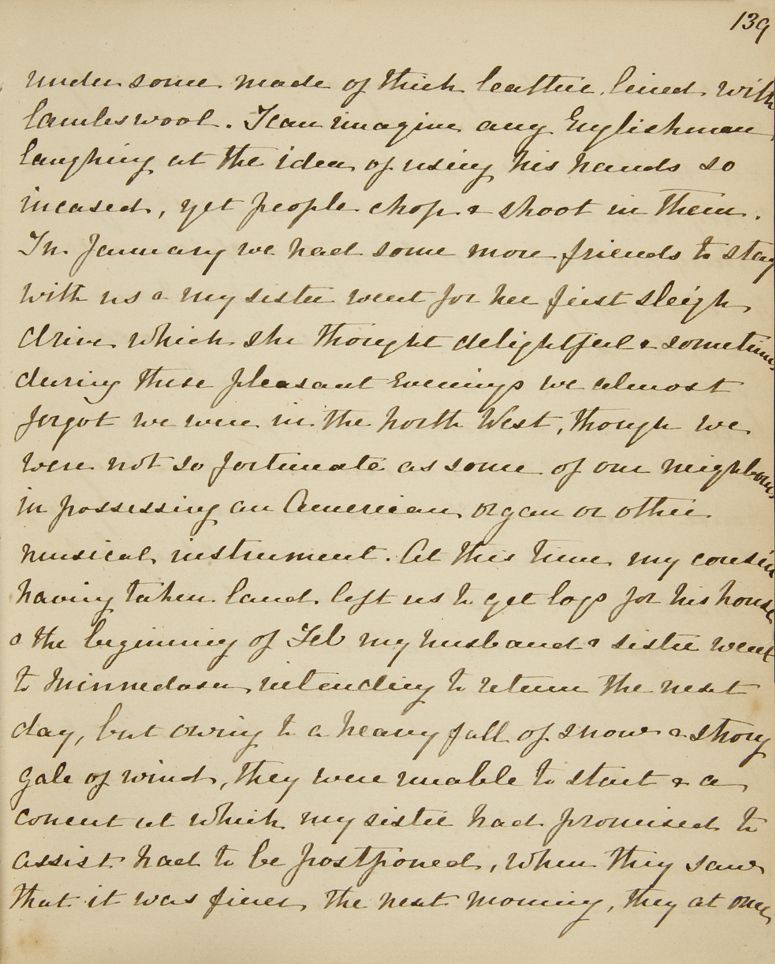 139
under some made of thick leather, lined with
lambswool. I can imagine any Englishman
laughing at the idea of using his hands so
incased, yet people chop & shoot in them.
In January we had some more friends to stay
with us & my sister went for her first sleigh
drive which she thought delightful & sometimes
during these pleasant Evenings we almost
forgot we were in the North West, though we
were not so fortunate as some of our neighbours
in possessing an American organ or other
musical instrument. At this time my cousin
having taken land left us to get logs for his house
& the beginning of Feb my husband & sister went
to Minnedosa, intending to return the next
day, but owing to a heavy fall of snow & strong
gale of wind, they were unable to start & a
concert at which my sister had promised to
assist had to be postponed, when they saw
that it was finer the next morning, they at once